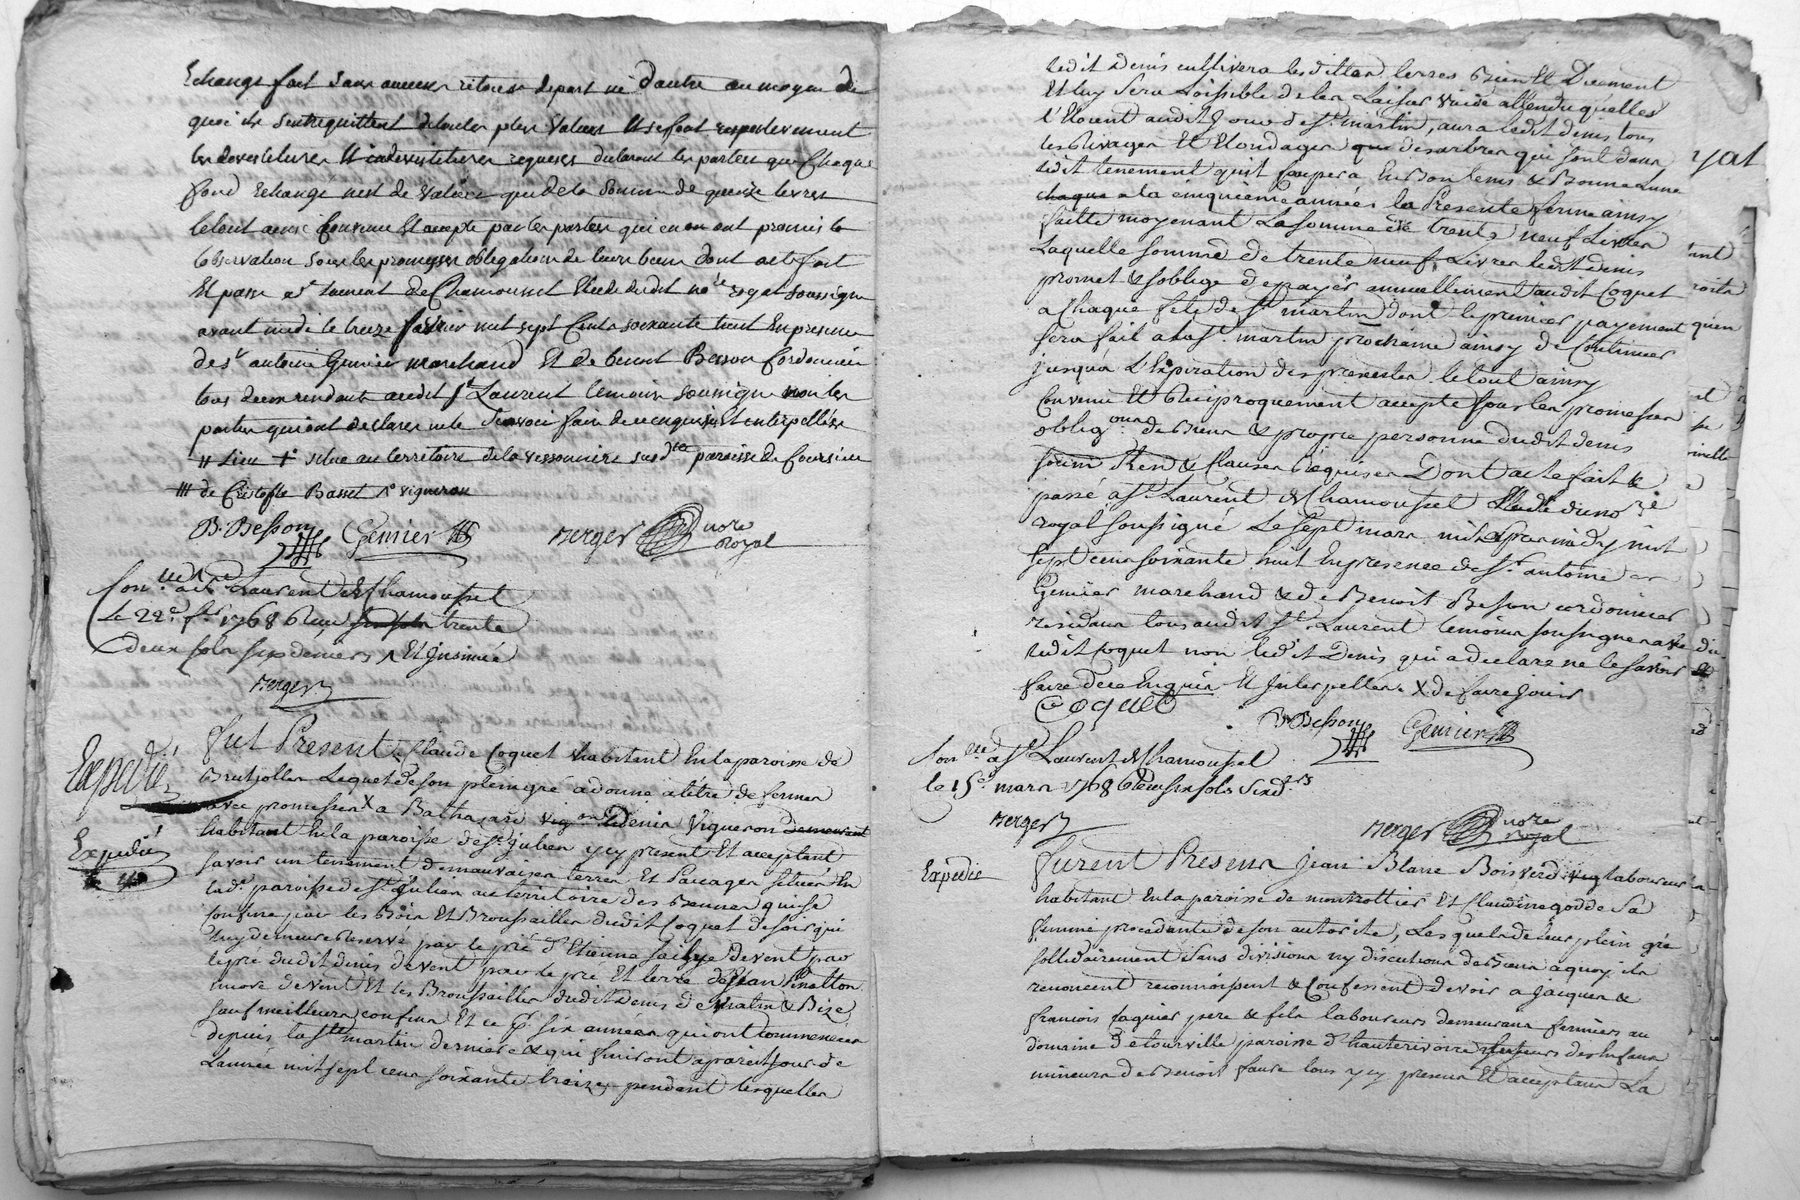 Echange fait sans aucun retour de part ni d'autre au moyen de
quoi ils s'entrequittent de toutes plus values et se font respectivement
les devestitures et investitures requises declarant les parties que chaque
fond echangé n'est de valeur que de la somme de quinze livres
le tout ainsi convenu et accepté par les parties qui en ont promis l'
observation sous les promesses obligations de leurs biens dont acte fait
et passé a st laurent de Chamousset etude dudit nore royal soussigné
avant midi le treize fevrier mil sept cents soixante huit En presence
de sr antoine Genier marchand Et de benoit Besson Cordonnier
tous deux residants audit st Laurent temoins soussignés non les
parties qui ont declarés ne le scavoir faire de ce enquises Et interpellées
# Lieu + situe au territoire de la vessonniere susdte paroisse de Coursieu
## de Cristofle Basset # vigneron
B. Besson Genier Berger nore royal
Con. au d. St Laurent de Chamousset
le 22e fr 1768 Recu trente
deux sols six deniers Et Insinué
Berger
Expedié
Fut Present Sr Claude Coquet habitant En la paroisse de
Brullolles Lequel de son plein gré a donné a titre de ferme
avec promesses X a Balthazard Denis Vigneron demeurant
habitant En la paroisse de st julien y cy present Et acceptant
Expedié
savoir un tenement de mauvaises terres Et Pacages situés En
lade paroisse de st julien au territoire des quise
confine par les Bois Et Broussailles dudit Coquet de soir qui
luy demeure Reservé par le pré d'Etienne de vent par
le pré dudit denis de vent par le pré Et terre de Jean Pinatton
encore de vent Et les Broussailles dudit Denis de matin & Bize
sauf meilleurs confins Et ce p. six années qui ont commencées
depuis la st martin derniere & qui finiront a pareil jour de
L'année mil sept cens soixante treize pendant lesquelles
ledit Denis cultivera lesdittes terres Bien Et Duement
Et luy sera Loissible de les Laisser vuide attendu qu'elles
l'Etoient audit jour de st martin, aura ledit denis tous
les Elivages Et Elondages que des arbres qui sont dans
ledit tenement qu'il coupera En Bon tems & Bonne Lune
chaque a la cinquieme année la Presente ferme ainsy
faitte moyenant La somme de trente neuf Livres
Laquelle somme de trente neuf Livres ledit denis
promet & s'oblige de payer annuellement audit Coquet
a Chaque fete de st martin dont le premier payement
sera fait a la st martin prochaine ainsy de Continuer
jusqu'a L'Expiration des presentes le tout ainsy
Convenu Et Reciproquement accepté sous les promesses
obligons de Biens & propre personne dudit denis
soum Ren & clauses Requises Dont acte fait &
passé a st Laurent de Chamousset Etude du nore
royal soussigné Le sept mars apres midy mil
sept cens soixante huit En presence de sr antoine
Genier marchand & de Benoit Besson cordonnier
residans tous audit st Laurent temoins soussignés avec
ledit Coquet non ledit Denis qui a declaré ne le savoir
faire de ce Enquis Et Interpellé X de faire jouir
Coquet
B. Besson Genier
Con. a st Laurent de Chamousset
le 15e mars 1768 Recu six sols six drs
Berger
Berger nore royal
Expedié
Furent Presens Jean Blanc Boisverd laboureur
habitant En la paroisse de montrottier Et Claudine godde Sa
femme procedante de son autorite, Lesquels de leur plein gré
sollidairement sans division ny discution de Biens a quoy ils
renoncent reconnoissent & Confessent devoir a jacques &
francois faquier pere & fils laboureurs demeurans fermiers au
domaine D'etourville paroisse d'hauterivoire des Enfans
mineurs de Benoit faure tous y cy presens Et acceptans La